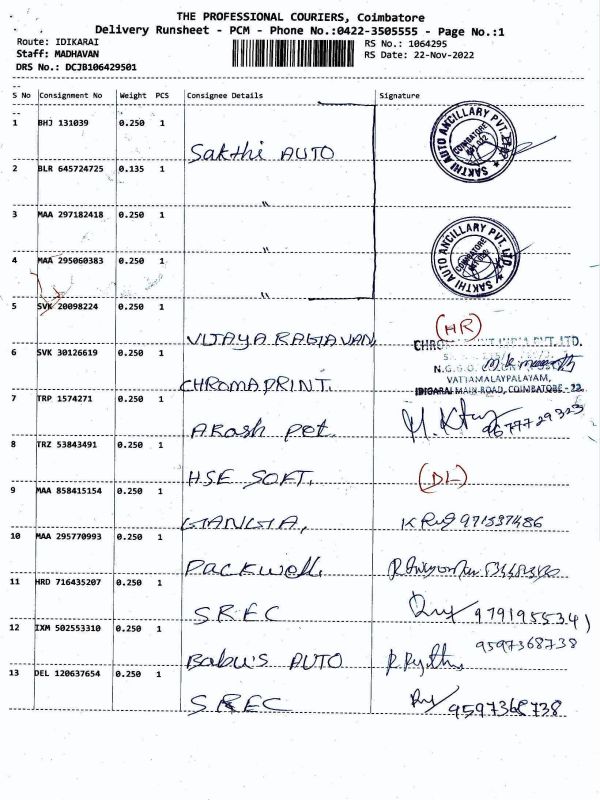 THE PROFESSIONAL COURIERS, Coimbatore
Delivery Runsheet - PCM - Phone No.:0422-3505555 - Page No.:1
Route: IDIKARAI
RS No.: 1064295
Staff: MADHAVAN
RS Date: 22-Nov-2022
DRS No.: DCJB106429501
S No Consignment No Weight PCS Consignee Details Signature
1 BHJ 131039 0.250 1
SAKTHI AUTO ANCILLARY PVT. LTD.
COIMBATORE
Sakthi AUTO
2 BLR 645724725 0.135 1
"
3 MAA 297182418 0.250 1
"
SAKTHI AUTO ANCILLARY PVT. LTD.
COIMBATORE
4 MAA 295060383 0.250 1
"
5 SVK 20098224 0.250 1
VIJAYA RAGAVAN (HR)
6 SVK 30126619 0.250 1
PVT. LTD.
N.G.G.O.
VATTAMALAYPALAYAM,
CHROMAPRINT.
IDIGARAI MAIN ROAD, COIMBATORE - 22.
7 TRP 1574271 0.250 1
9677729323
Akash Pet.
8 TRZ 53843491 0.250 1
HSE SOFT. (DL)
9 MAA 858415154 0.250 1
GANGA,
971537486
10 MAA 295770993 0.250 1
Packwell.
11 HRD 716435207 0.250 1
SREC
9791955341
12 IXM 502553310 0.250 1
9597368738
Babu's AUTO
13 DEL 120637654 0.250 1
SREC
9597368738